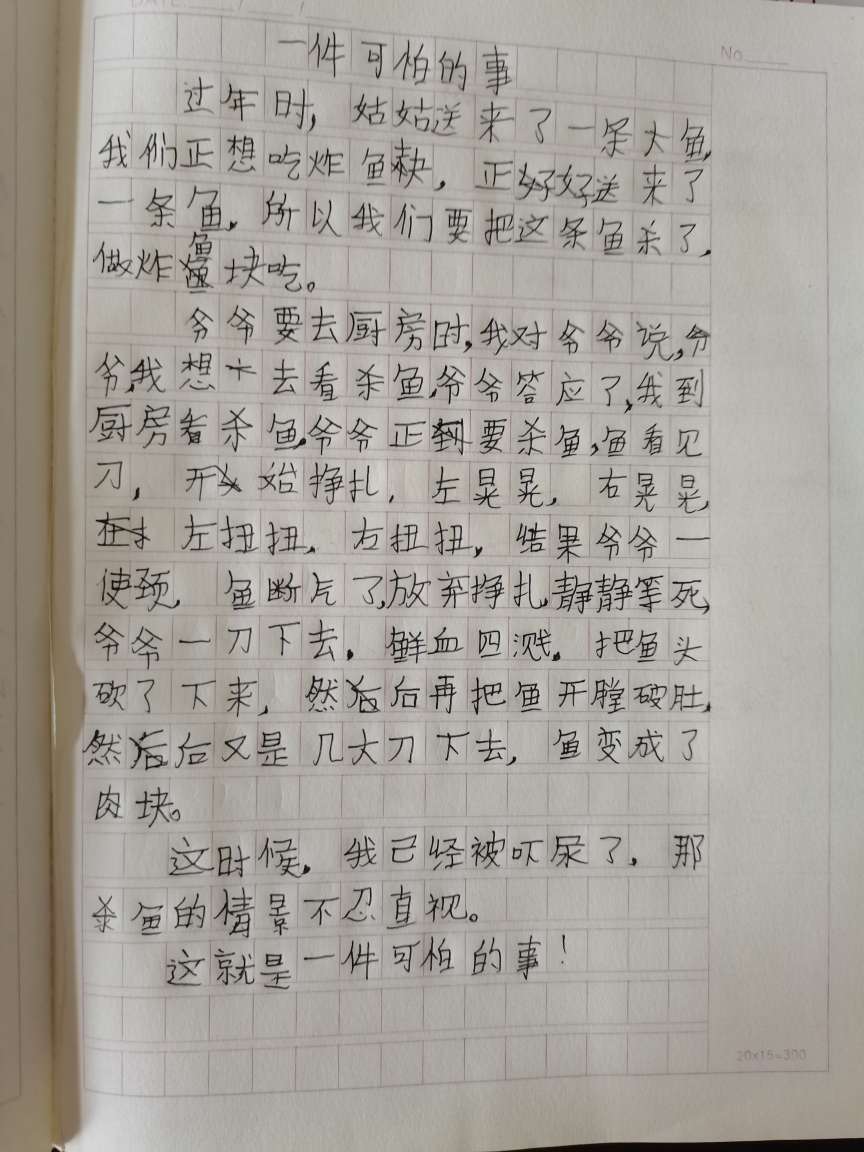 DATE ___/___/___
No.____
一件可怕的事
过年时，姑姑送来了一条大鱼，
我们正想吃炸鱼块，正好送来了
一条鱼，所以我们要把这条鱼杀了，
做炸鱼块吃。
爷爷要去厨房时，我对爷爷说，爷
爷，我想去看杀鱼，爷爷答应了，我到
厨房看杀鱼，爷爷正要杀鱼，鱼看见
刀，开始挣扎，左晃晃，右晃晃，
左扭扭，右扭扭，结果爷爷一
使颈，鱼断气了，放弃挣扎，静静等死，
爷爷一刀下去，鲜血四溅，把鱼头
砍了下来，然后再把鱼开膛破肚，
然后又是几大刀下去，鱼变成了
肉块。
这时候，我已经被吓尿了，那
杀鱼的情景不忍直视。
这就是一件可怕的事！
20×15=300